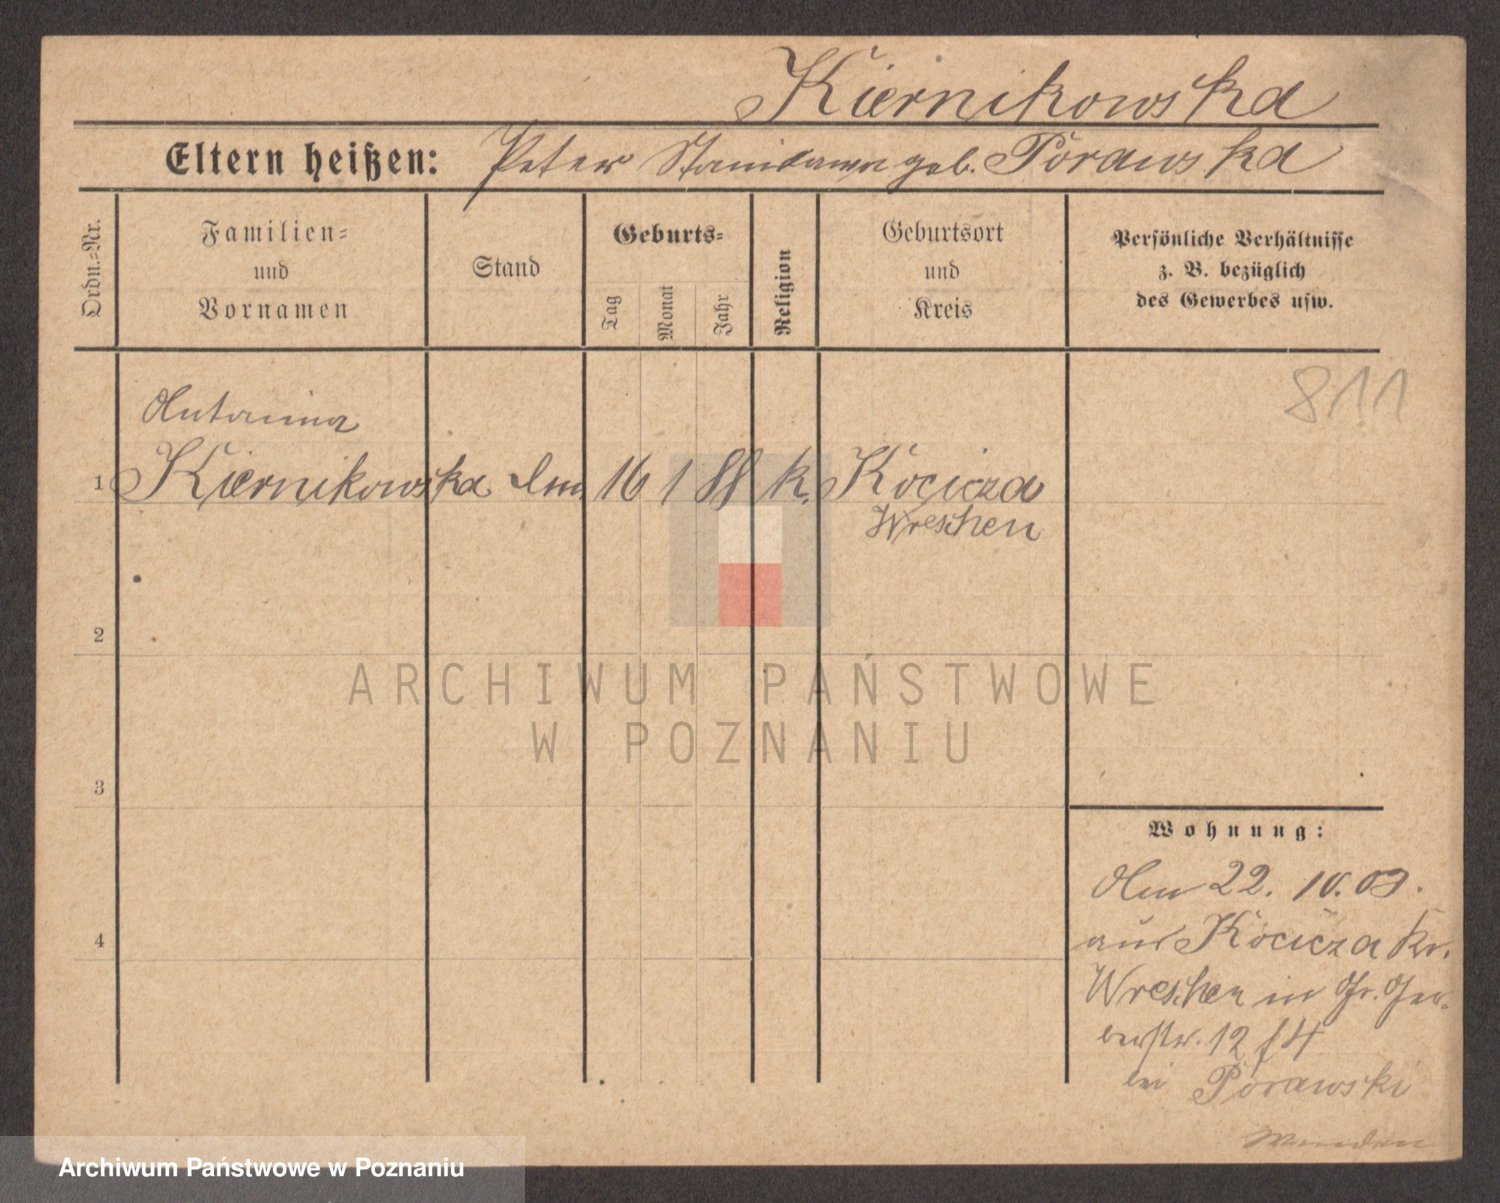 Kiernikowska
Eltern heißen: Peter Stanislawa geb. Porawska
Ordn.-Nr.
Familien-
und
Vornamen
Stand
Geburts-
Tag
Monat
Jahr
Religion
Geburtsort
und
Kreis
Persönliche Verhältnisse
z. B. bezüglich
des Gewerbes usw.
811
Antonina
1 Kiernikowska 16 1 88 k. Kocicza
Wreschen
2
3
4
ARCHIWUM PAŃSTWOWE
W POZNANIU
Wohnung:
Am 22. 10. 03.
aus Kocicza Kr.
Wreschen in Gr. Ger-
berstr. 12 f4
bei Porawski
Wenden
Archiwum Państwowe w Poznaniu